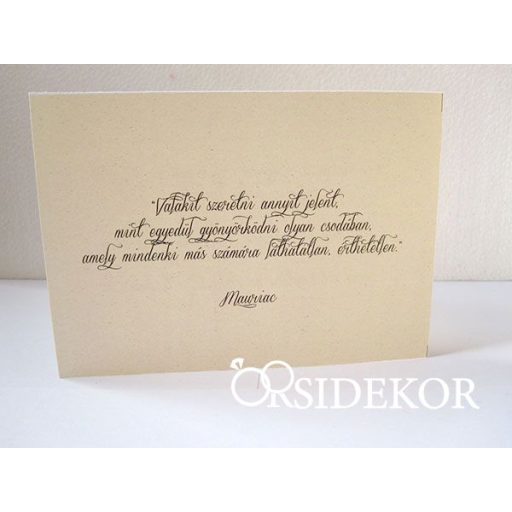 "Valakit szeretni annyit jelent,
mint egyedül gyönyörködni olyan csodában,
amely mindenki más számára láthatatlan, érthetetlen."
Mauriac
ORSIDEKOR